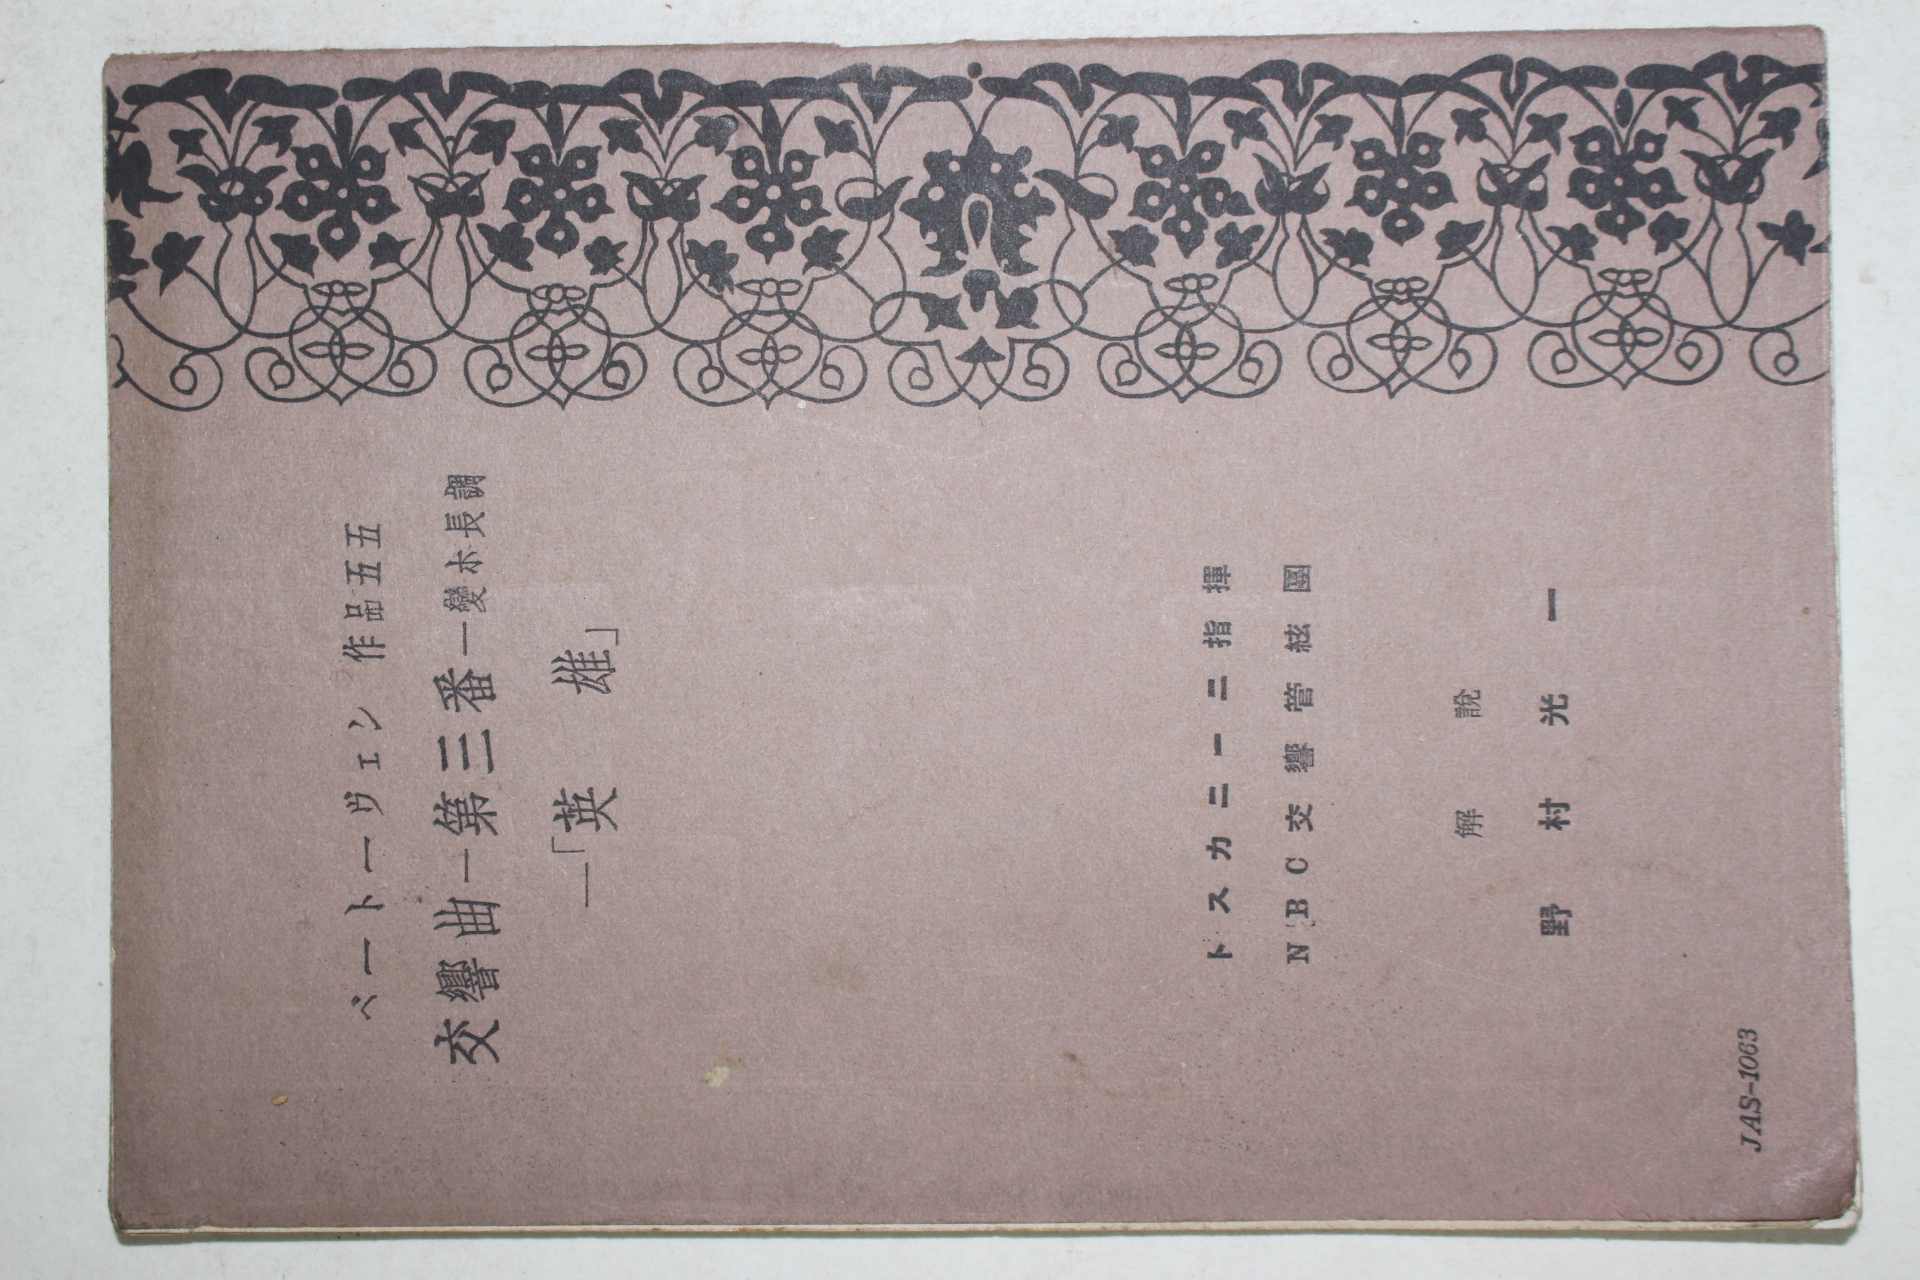 ベートーヴェン 作品五五
交響曲―第三番―變ホ長調
―「英雄」
トスカニーニ指揮
NBC交響管絃團
解說
野村光一
JAS-1063